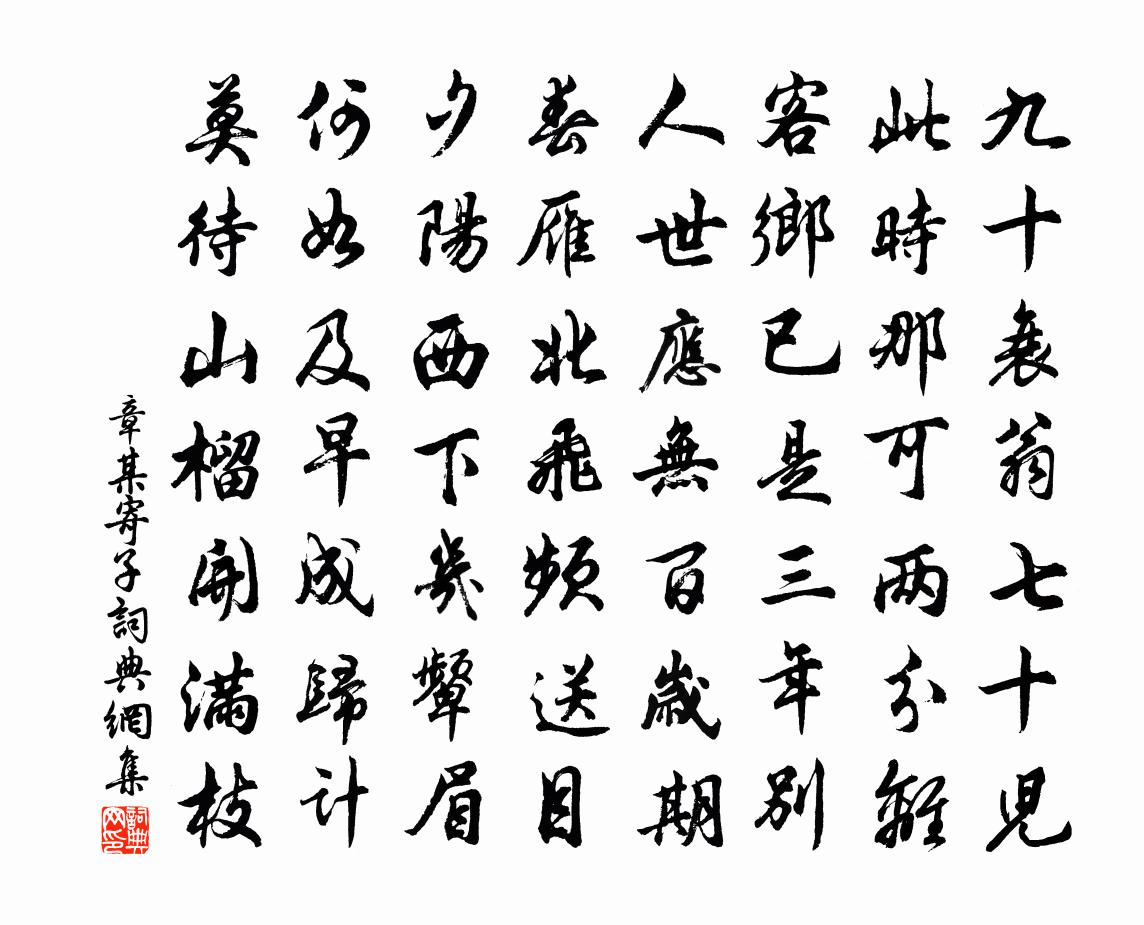 九十衰翁七十兒
此時那可兩分離
客鄉已是三年別
人世應無百歲期
春雁北飛頻送目
夕陽西下幾顰眉
何如及早成歸計
莫待山榴開滿枝
章某寄子詞典網集
詞典网印